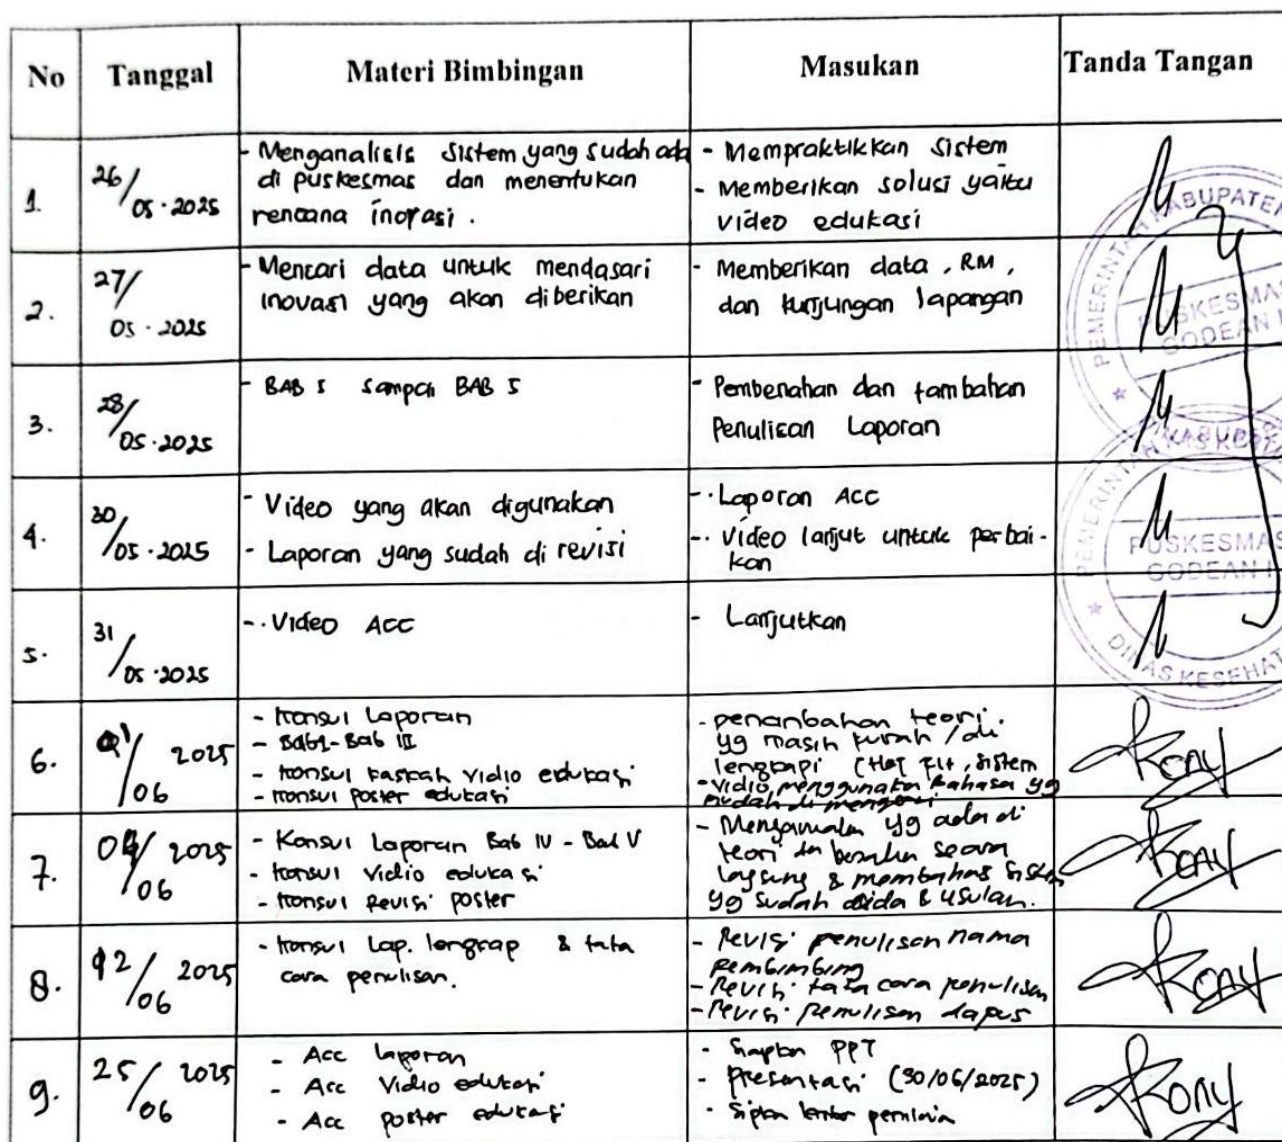 No Tanggal Materi Bimbingan Masukan Tanda Tangan
1. 26/05-2025
- Menganalisis sistem yang sudah ada
di puskesmas dan menentukan
rencana inovasi.
- Mempraktikkan sistem
- Memberikan solusi yaitu
video edukasi
2. 27/05-2025
- Mencari data untuk mendasari
inovasi yang akan diberikan
- Memberikan data, RM,
dan kunjungan lapangan
3. 28/05-2025
- BAB 1 sampai BAB 5
- Pembenahan dan tambahan
Penulisan Laporan
4. 30/05-2025
- Video yang akan digunakan
- Laporan yang sudah di revisi
- Laporan ACC
- Video lanjut untuk perbai-
kan
5. 31/05-2025
- Video ACC
- Lanjutkan
6. /06 2025
- Konsul Laporan
- Bab I - Bab III
- Konsul naskah vidio edukasi
- Konsul poster edukasi
- penambahan teori
yg masih kurang / di
lengkapi (Hot Fit, sistem
- Vidio menggunakan bahasa yg
mudah di mengerti
7. /06 2025
- Konsul Laporan Bab IV - Bab V
- Konsul vidio edukasi
- Konsul Revisi poster
yg ada di
teori secara
langsung & membahas sistem
yg sudah & usulan.
8. 12/06 2025
- Konsul Lap. lengkap & tata
cara penulisan.
- Revisi penulisan nama
pembimbing
- Revisi tata cara penulisan
- Revisi penulisan dapus
9. 25/06 2025
- Acc laporan
- Acc Vidio edukasi
- Acc poster edukasi
- Siapkan PPT
- Presentasi (30/06/2025)
- Sipkan lembar
PEMERINTAH KABUPATEN
PUSKESMAS
GODEAN I
PEMERINTAH KABUPATEN
PUSKESMAS
GODEAN I
DINAS KESEHATAN